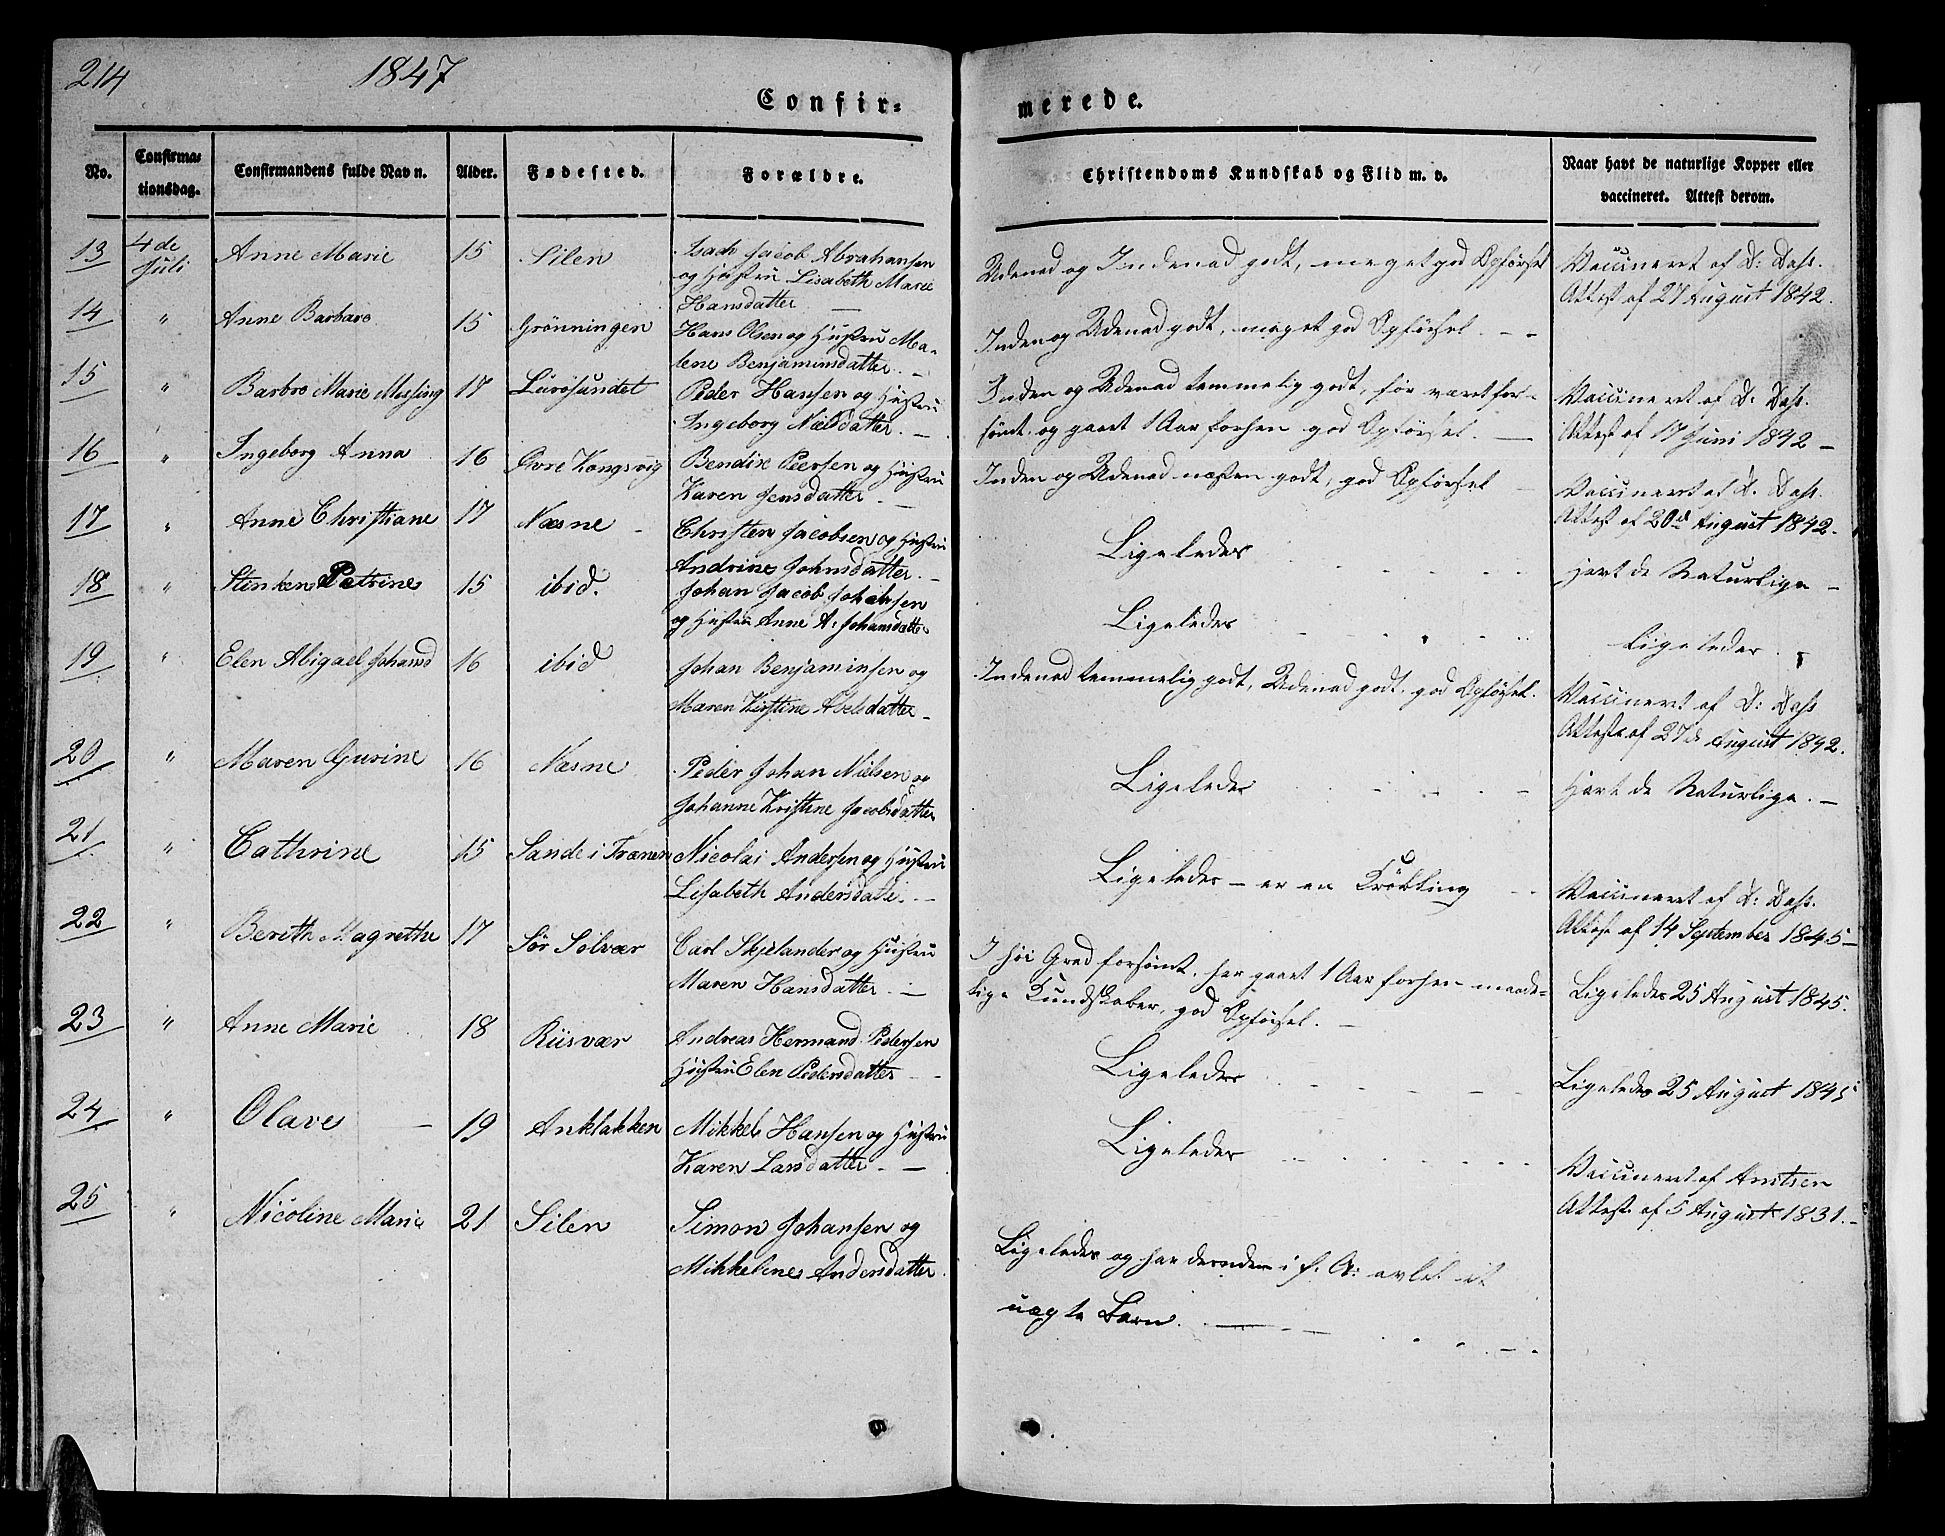 214
1847
Confir=
merede.
No.
Confirma=
tionsdag.
Confirmandens fulde Navn.
Alder.
Fødested.
Forældre.
Christendoms Kundskab og Flid m. v.
Naar havt de naturlige Kopper eller
vaccineret. Attest derom.
13 4de Juli Anne Marie 15 Silen Isach Jacob Abrahansen
og Hustru Lisabeth Marie
Hansdatter —
Udenad og Indenad godt, meget god Opførsel
Vaccineret af D: Dass.
Attest af 27 August 1842.
14 " Anne Barbara 15 Grønningen Hans Olsen og Hustru Ma-
lene Benjaminsdatter. —
Inden og Udenad godt, meget god Opførsel. — —
15 " Barbro Marie Messing 17 Lurøsundet Peder Hansen og Hustru
Ingeborg Nielsdatter. —
Inden og Udenad temmelig godt, før været for-
sömt, og gaaet 1 Aar forhen god Opførsel. —
Vaccineret af D: Dass.
Attest af 17 Juni 1842 —
16 " Ingeborg Anna 16 Øvre Kongsvig Bendix Peersen og Hustru
Karen Jensdatter —
Inden og Udenad næsten godt, god Opførsel
Vaccineret af D. Dass.
Attest af 20de August 1842.
17 " Anne Christiane 17 Næsne — Christen Jacobsen og Hustru
Andrine Johnsdatter. —
Ligeledes
Havt de Naturlige —
18 " Petrine 15 ibid. Johan Jacob Johansen
og Hustru Anne A: Johansdatter
Ligeledes
Ligeledes.
19 " Elen Abigael Johansd 16 ibid Johan Benjaminsen og
Maren Kirstine Abelsdatter —
Indenad temmelig godt, Udenad godt, god Opførsel.
Vaccineret af D: Dass
Attest af 27de August 1842.
20 " Maren Gurine 16 Næsne Peder Johan Nielsen og
Johanne Kristine Jacobsdatter
Ligeledes
Havt de Naturlige. —
21 " Cathrine 15 Sande i Trænen Nicolai Andersen og Hustru
Lisabeth Andersdatter. —
Ligeledes — er en Krøbling
Vaccineret af D: Dass.
Attest af 14 September 1845 —
22 " Berith Magrethe 17 Sør Solvær Carl Skjelander og Hustru
Maren Hansdatter. —
I höi Grad forsömt, har gaaet 1 Aar forhen maade-
lige Kundskaber, god Opförsel. —
Ligeledes 25 August 1845.
23 " Anne Marie 18 Riisvær Andreas Hermand Pedersen
Hustru Elen Pedersdatter —
Ligeledes
Ligeledes 25 August 1845
24 " Olave — 19 Anklakken Mikkel Hansen og Hustru
Karen Larsdatter. —
Ligeledes
Vaccineret af Arntsen
Attest af 5 August 1831. —
25 " Nicoline Marie 21 Silen Simon Johansen og
Mikkeline Andersdatter.
Ligeledes og har desuden i f. A: avlet et
uægte Barn. —